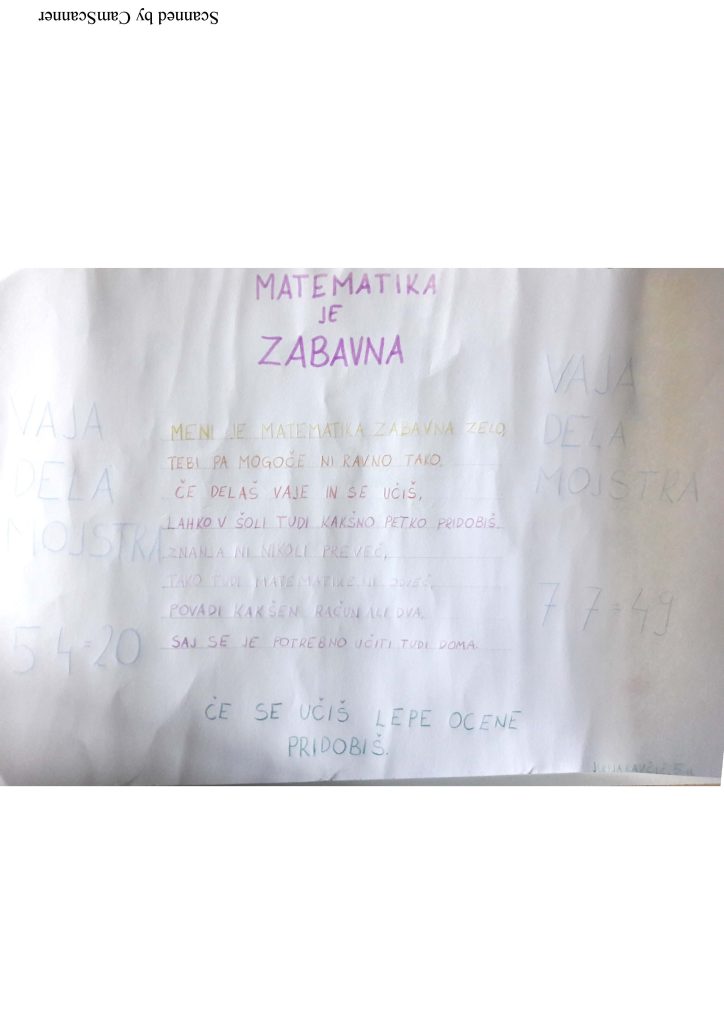 Scanned by CamScanner
MATEMATIKA
JE
ZABAVNA
VAJA
DELA
MOJSTRA
5 4 = 20
MENI JE MATEMATIKA ZABAVNA ZELO,
TEBI PA MOGOČE NI RAVNO TAKO.
ČE DELAŠ VAJE IN SE UČIŠ,
LAHKO V ŠOLI TUDI KAKŠNO PETKO PRIDOBIŠ.
ZNANJA NI NIKOLI PREVEČ,
TAKO TUDI MATEMATIKE NE
POVADI KAKŠEN RAČUN ALI DVA,
SAJ SE JE POTREBNO UČITI TUDI DOMA.
VAJA
DELA
MOJSTRA
7 7 = 49
ČE SE UČIŠ LEPE OCENE
PRIDOBIŠ.